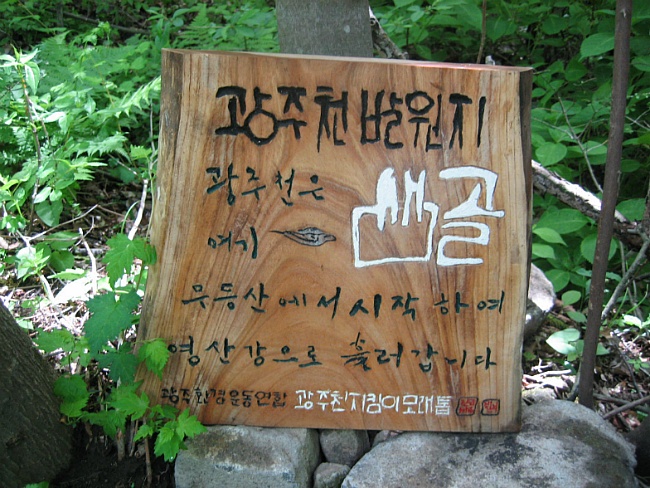 광주천 발원지
광주천은
여기 샘골
무등산에서 시작하여
영산강으로 흘러갑니다
광주환경운동연합 광주천지킴이모래톱